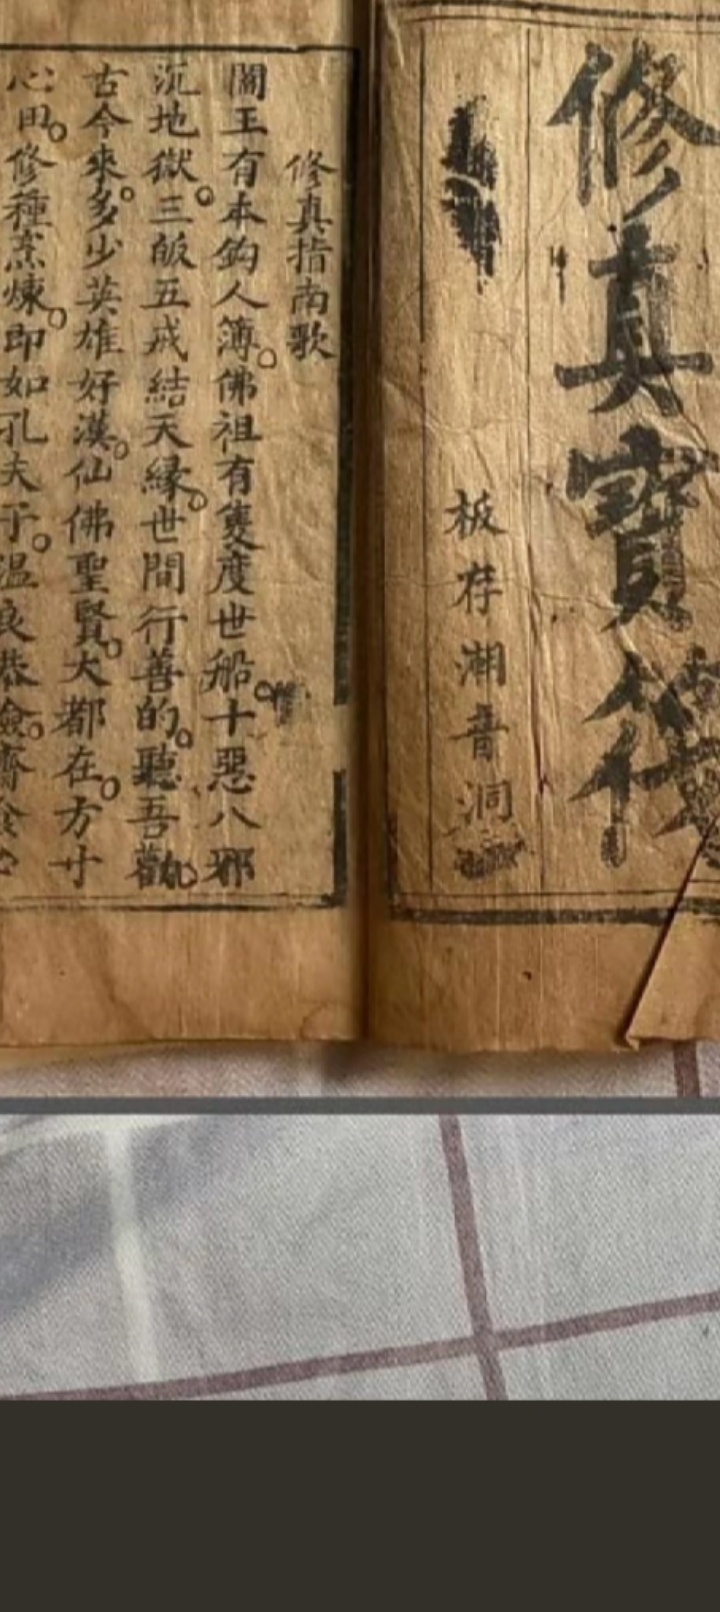 修真寶筏
板存潮音洞
修真指南歌
閻王有本鈎人簿佛祖有隻度世船十惡八邪
沉地獄三皈五戒結天緣世間行善的聽吾勸
古今來多少英雄好漢仙佛聖賢大都在方寸
心田修種烹煉即如孔夫子温良恭儉